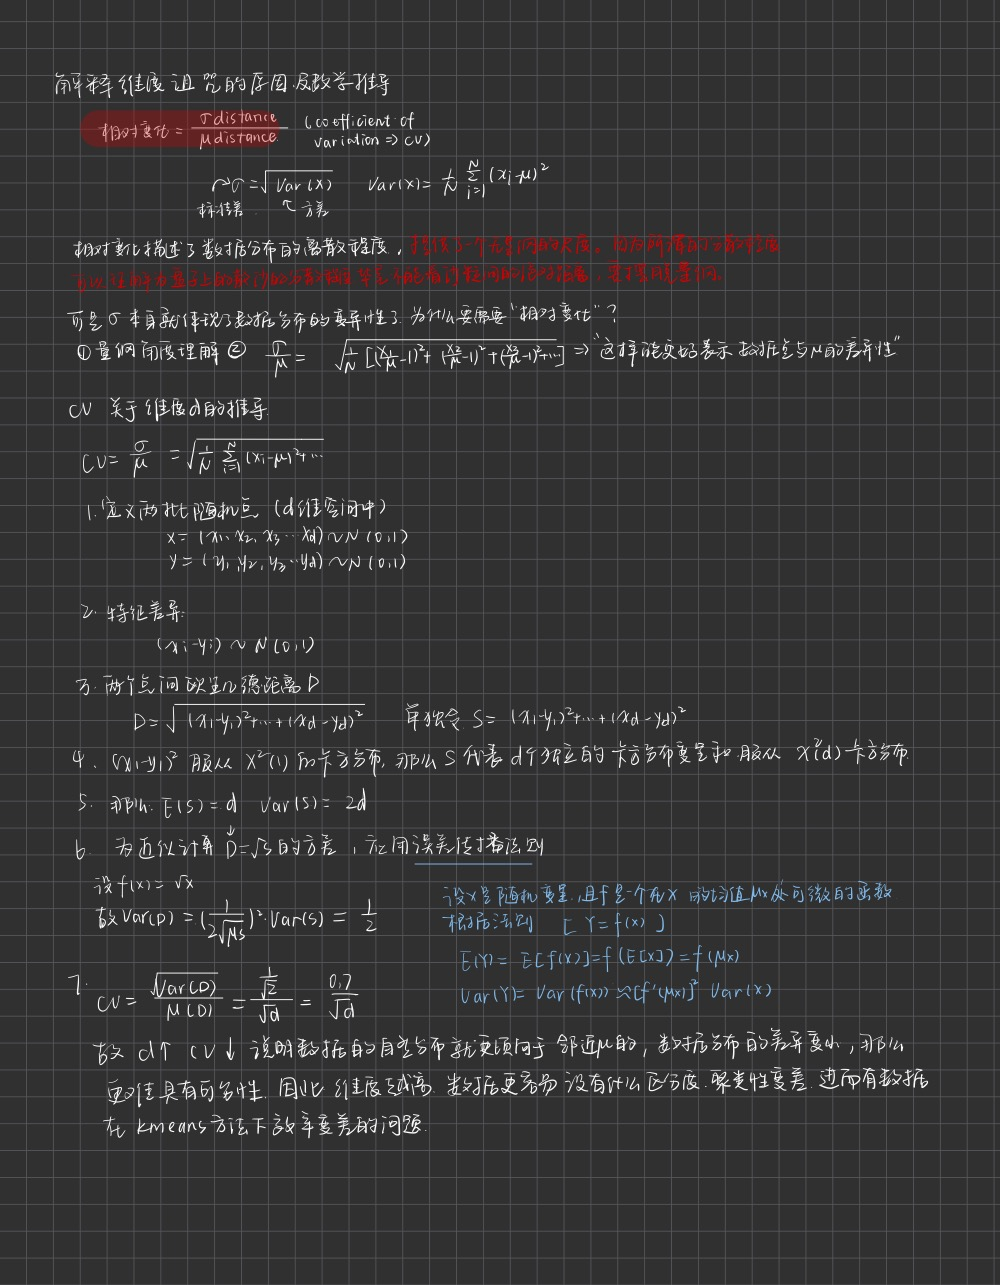 解释维度诅咒的原因及数学推导
相对变化 = σdistance / μdistance (coefficient of variation => CV)
σ = √Var(X) Var(X) = 1/N Σ_{i=1}^{N} (xi-μ)²
标准差 ↑方差
相对变化描述了数据分布的离散程度,提供了一个无量纲的尺度。因为所谓的分散程度
可是σ本身就体现了数据分布的变异性了.为什么要需要"相对变化"?
①量纲角度理解 ② σ/μ = √(1/N [(x₁/μ-1)²+(x₂/μ-1)²+(x₃/μ-1)²+…]) => "这样能更好表示数据点与μ的差异性"
CV 关于维度d的推导.
CV = σ/μ = √(1/N Σ_{i=1}^{N} (xi-μ)²+…
1. 定义两批随机点 (d维空间中)
x = (x₁, x₂, x₃…xd) ~ N(0,1)
y = (y₁, y₂, y₃…yd) ~ N(0,1)
2. 特征差异:
(xi-yi) ~ N(0,1)
3. 两个点间欧里几德距离D
D = √((x₁-y₁)²+…+(xd-yd)²) 单独令 S = (x₁-y₁)²+…+(xd-yd)²
4、(x₁-y₁)² 服从 X²(1)的卡方分布,那么S代表d个独立的卡方分布变量和.服从 X²(d)卡方分布.
5. 那么. E(S) = d Var(S) = 2d
6. 为近似计算 D=√S的方差,应用误差传播法则
设f(x) = √x
故Var(D) = (1/(2√μs))²·Var(S) = 1/2
设X是随机变量,且f是一个在X的均值μx处可微的函数
根据法则 [Y=f(x)]
E(Y) = E[f(X)] = f(E[X]) = f(μx)
Var(Y) = Var(f(x)) ≈ [f'(μx)]² Var(x)
7. CV = √Var(D) / μ(D) = (1/√2) / √d = 0.7/√d
故 d↑ CV↓ 说明数据的自身分布就更倾向于邻近μ的,数据分布的差异变小,那么
更难具有可分性.因此维度越高.数据更容易没有什么区分度.聚类性变差.进而有数据
在kmeans方法下效率变差的问题.